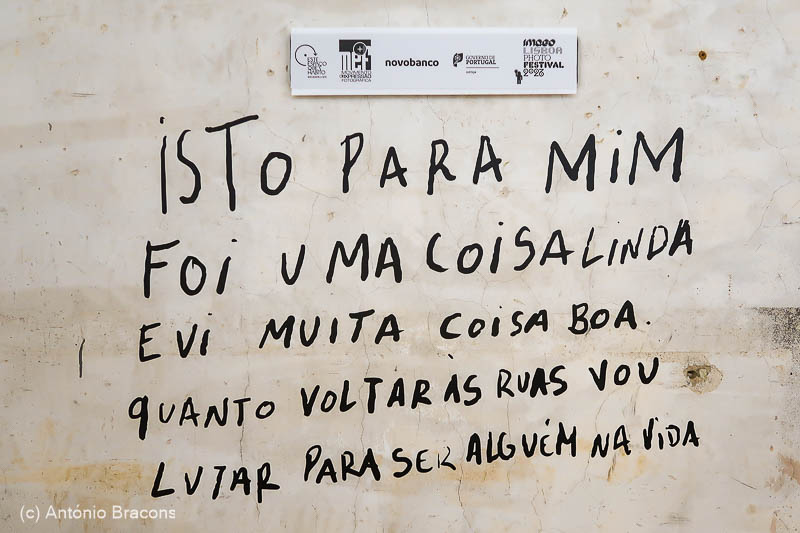 MEF
MOVIMENTO
EXPRESSÃO
FOTOGRÁFICA
novobanco
GOVERNO DE
PORTUGAL
JUSTIÇA
IMAGO
LISBOA
PHOTO
FESTIVAL
2023
iSTO PARA MiM
FOi UMA COiSA LINDA
E Vi MUITA COiSA BOA.
QUANTO VOLTAR ÀS RUAS VOU
LUTAR PARA SER ALGUÉM NA ViDA
(c) António Bracons